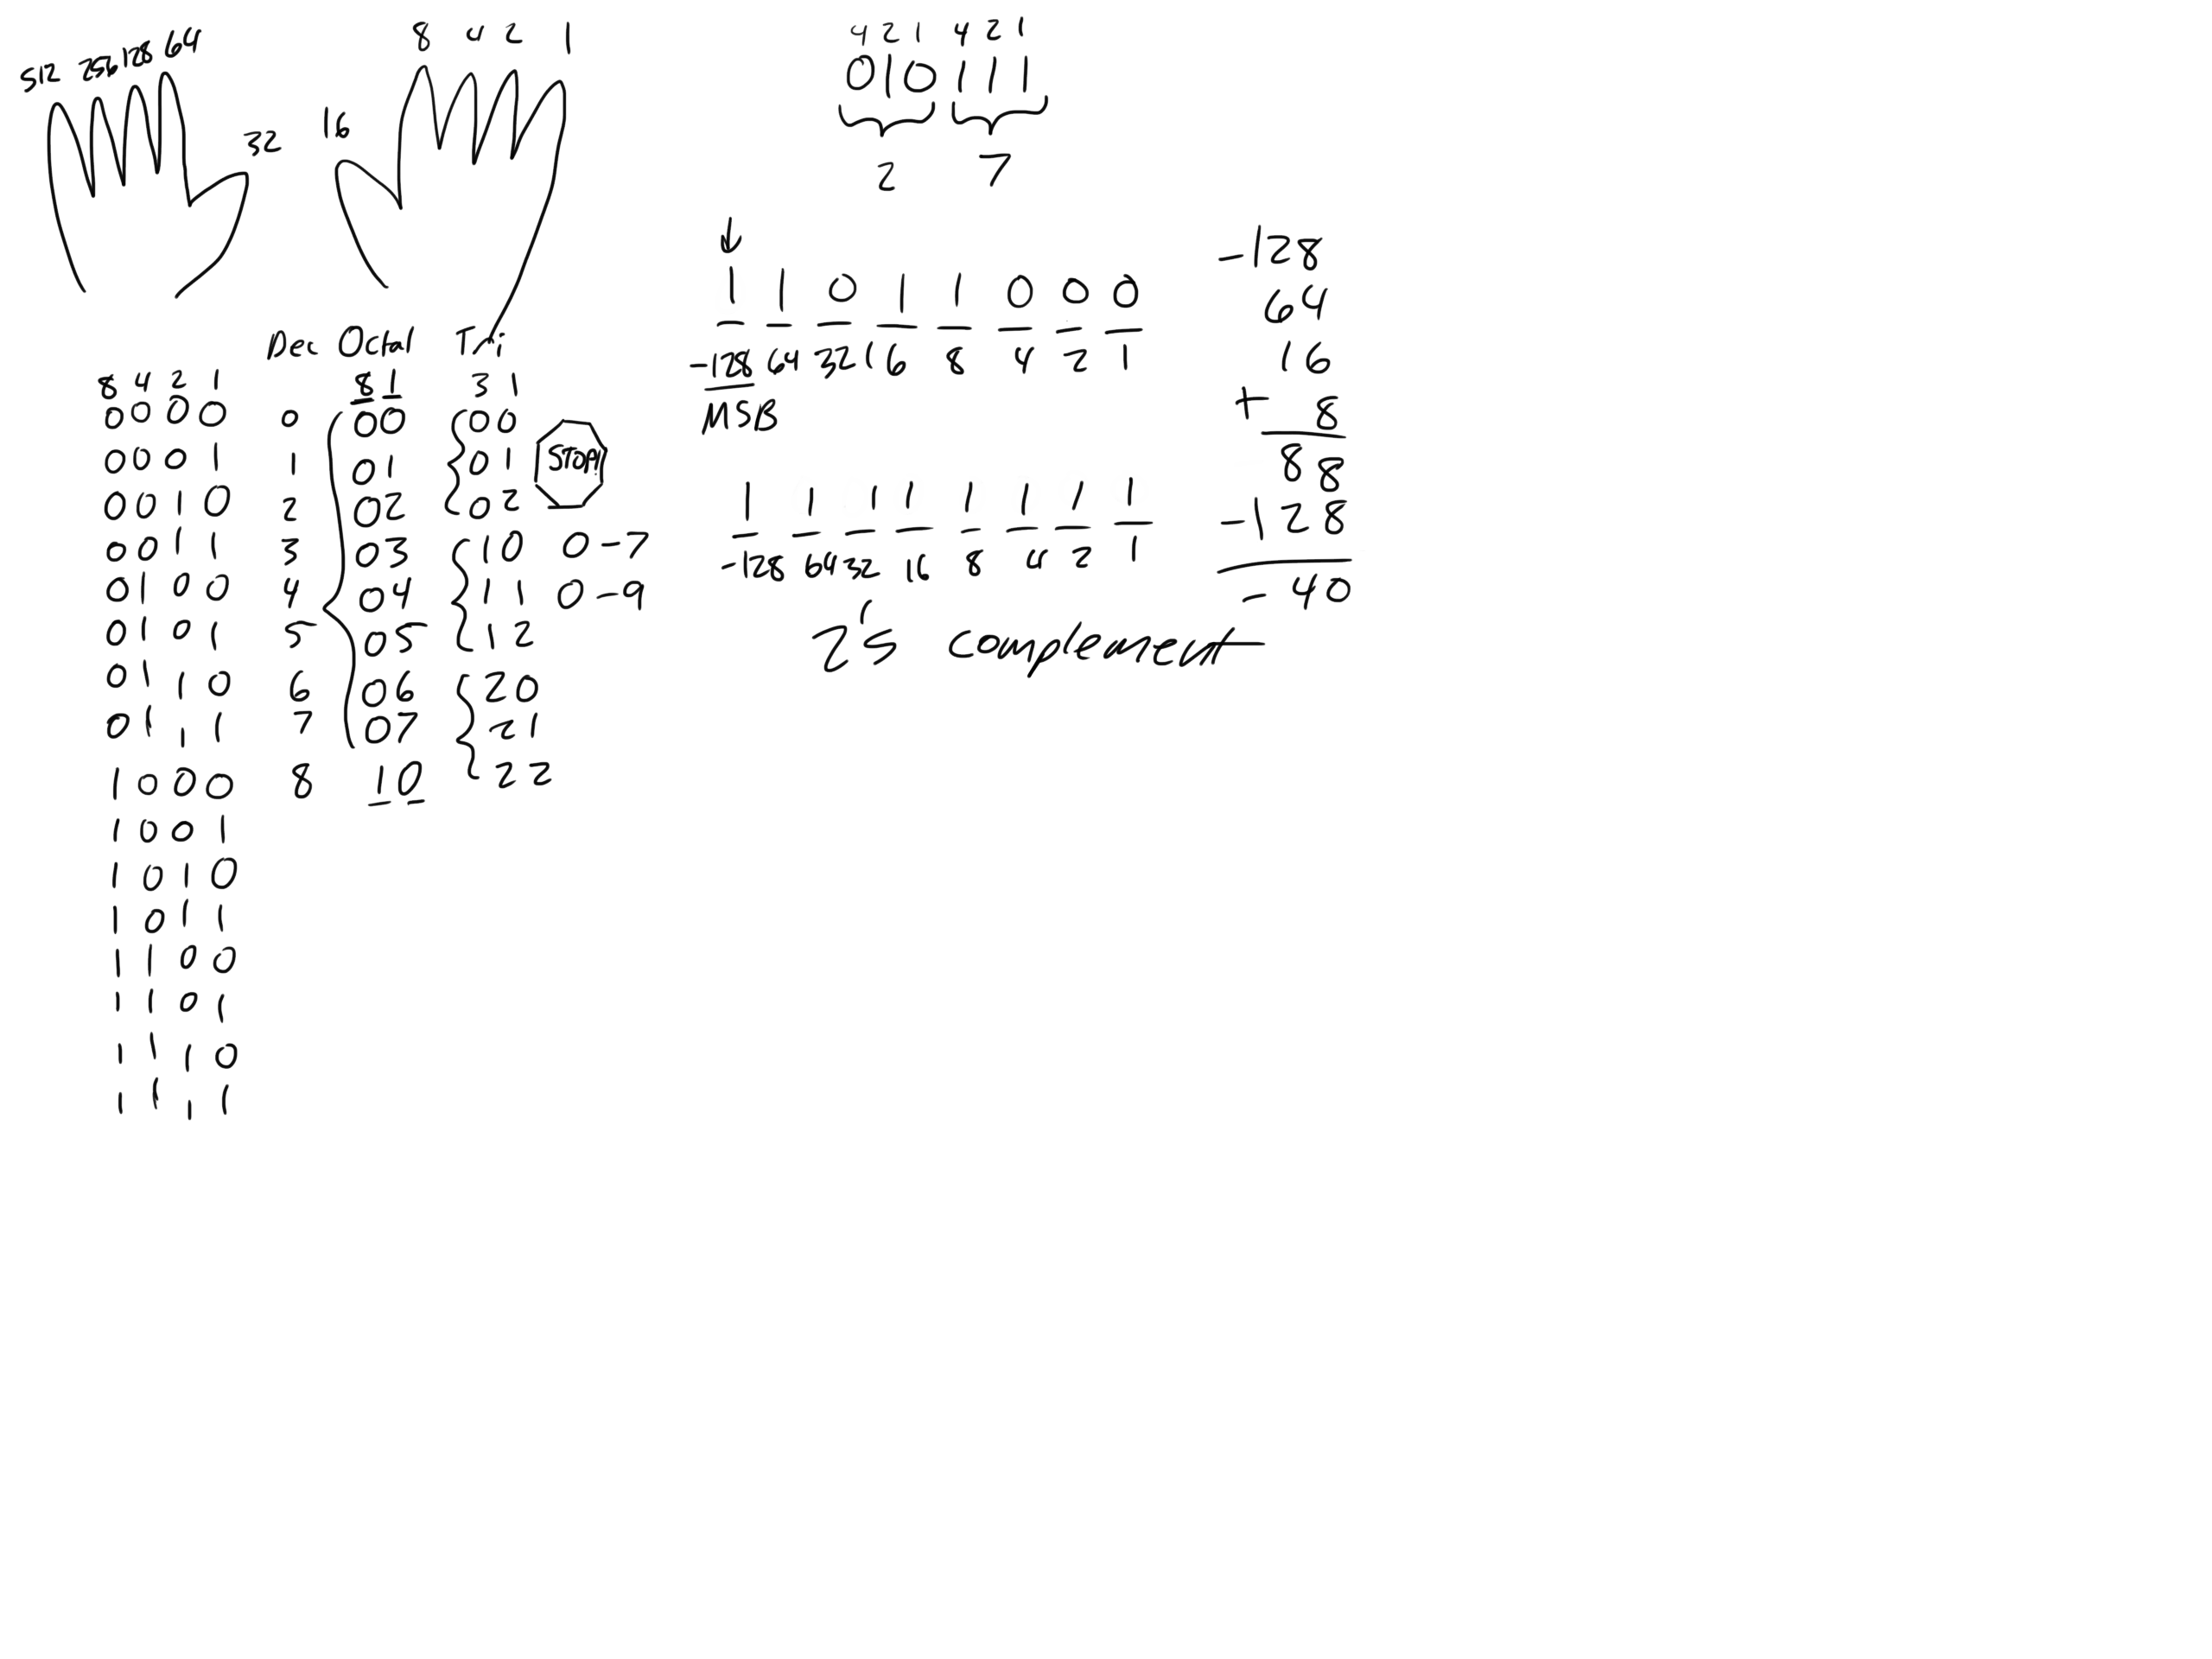 512 256 128 64
32
16
8 4 2 1
Dec Octal Tri
8 4 2 1 8 1 3 1
0 0 0 0 0 00 00
0 0 0 1 1 01 01
STOP!
0 0 1 0 2 02 02
0 0 1 1 3 03 10 0-7
0 1 0 0 4 04 11 0-9
0 1 0 1 5 05 12
0 1 1 0 6 06 20
0 1 1 1 7 07 21
1 0 0 0 8 10 22
1 0 0 1
1 0 1 0
1 0 1 1
1 1 0 0
1 1 0 1
1 1 1 0
1 1 1 1
4 2 1 4 2 1
010111
2 7
↓
1 1 0 1 1 0 0 0
-128 64 32 16 8 4 2 1
MSB
1 1 1 1 1 1 1 1
-128 64 32 16 8 4 2 1
2's complement
-128
64
16
+ 8
88
-128
-40